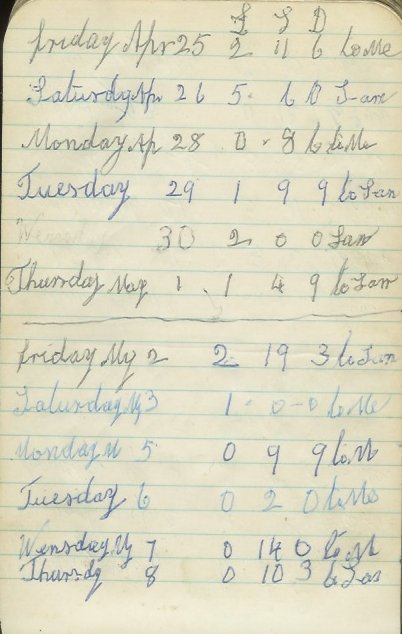 £ S D
friday Apr 25 2 11 6 to Me
Saturdy Ap 26 5 - 6 0
Monday Ap 28 0 - 8 6 to Me
Tuesday 29 1 9 9 to
30 2 0 0
Thursday May 1 . 1 4 9 to
friday My 2 2 19 3 to
Saturday My 3 1 - 0 - 0 to Me
Monday M 5 0 9 9 to M
Tuesday 6 0 2 0 to Me
Wensday My 7 0 14 0 to M
Thursdy 8 0 10 3 to